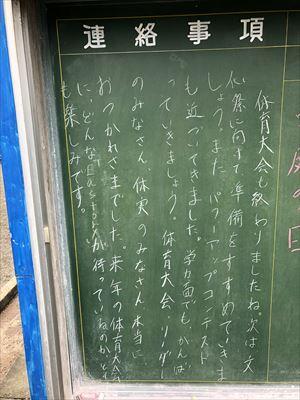 連絡事項
体育大会も終わりましたね。次は文
化祭に向けて準備をすすめていきま
しょう。また、パワーアップコンテスト
も近づいてきました。学力面でも、がんば
っていきましょう。体育大会リーダー
のみなさん、体実のみなさん本当に
おつかれさまでした。来年の体育大会
に、どんな が待っているのか、とて
も楽しみです。